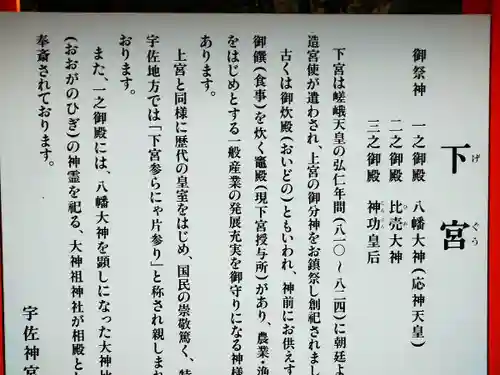 下宮
げぐう
御祭神 一之御殿 八幡大神(応神天皇)
二之御殿 比売大神
三之御殿 神功皇后
下宮は嵯峨天皇の弘仁年間(八一〇〜八二四)に朝廷よ
造宮使が遣わされ、上宮の御分神をお鎮祭し創祀されまし
古くは御炊殿(おいどの)ともいわれ、神前にお供えす
御饌(食事)を炊く竈殿(現下宮授与所)があり、農業・漁
をはじめとする一般産業の発展充実を御守りになる神様
あります。
上宮と同様に歴代の皇室をはじめ、国民の崇敬篤く、特
宇佐地方では「下宮参らにゃ片参り」と称され親しまれ
おります。
また、一之御殿には、八幡大神を顕しになった大神比
(おおがのひぎ)の神霊を祀る、大神祖神社が相殿と
奉斎されております。
宇佐神宮